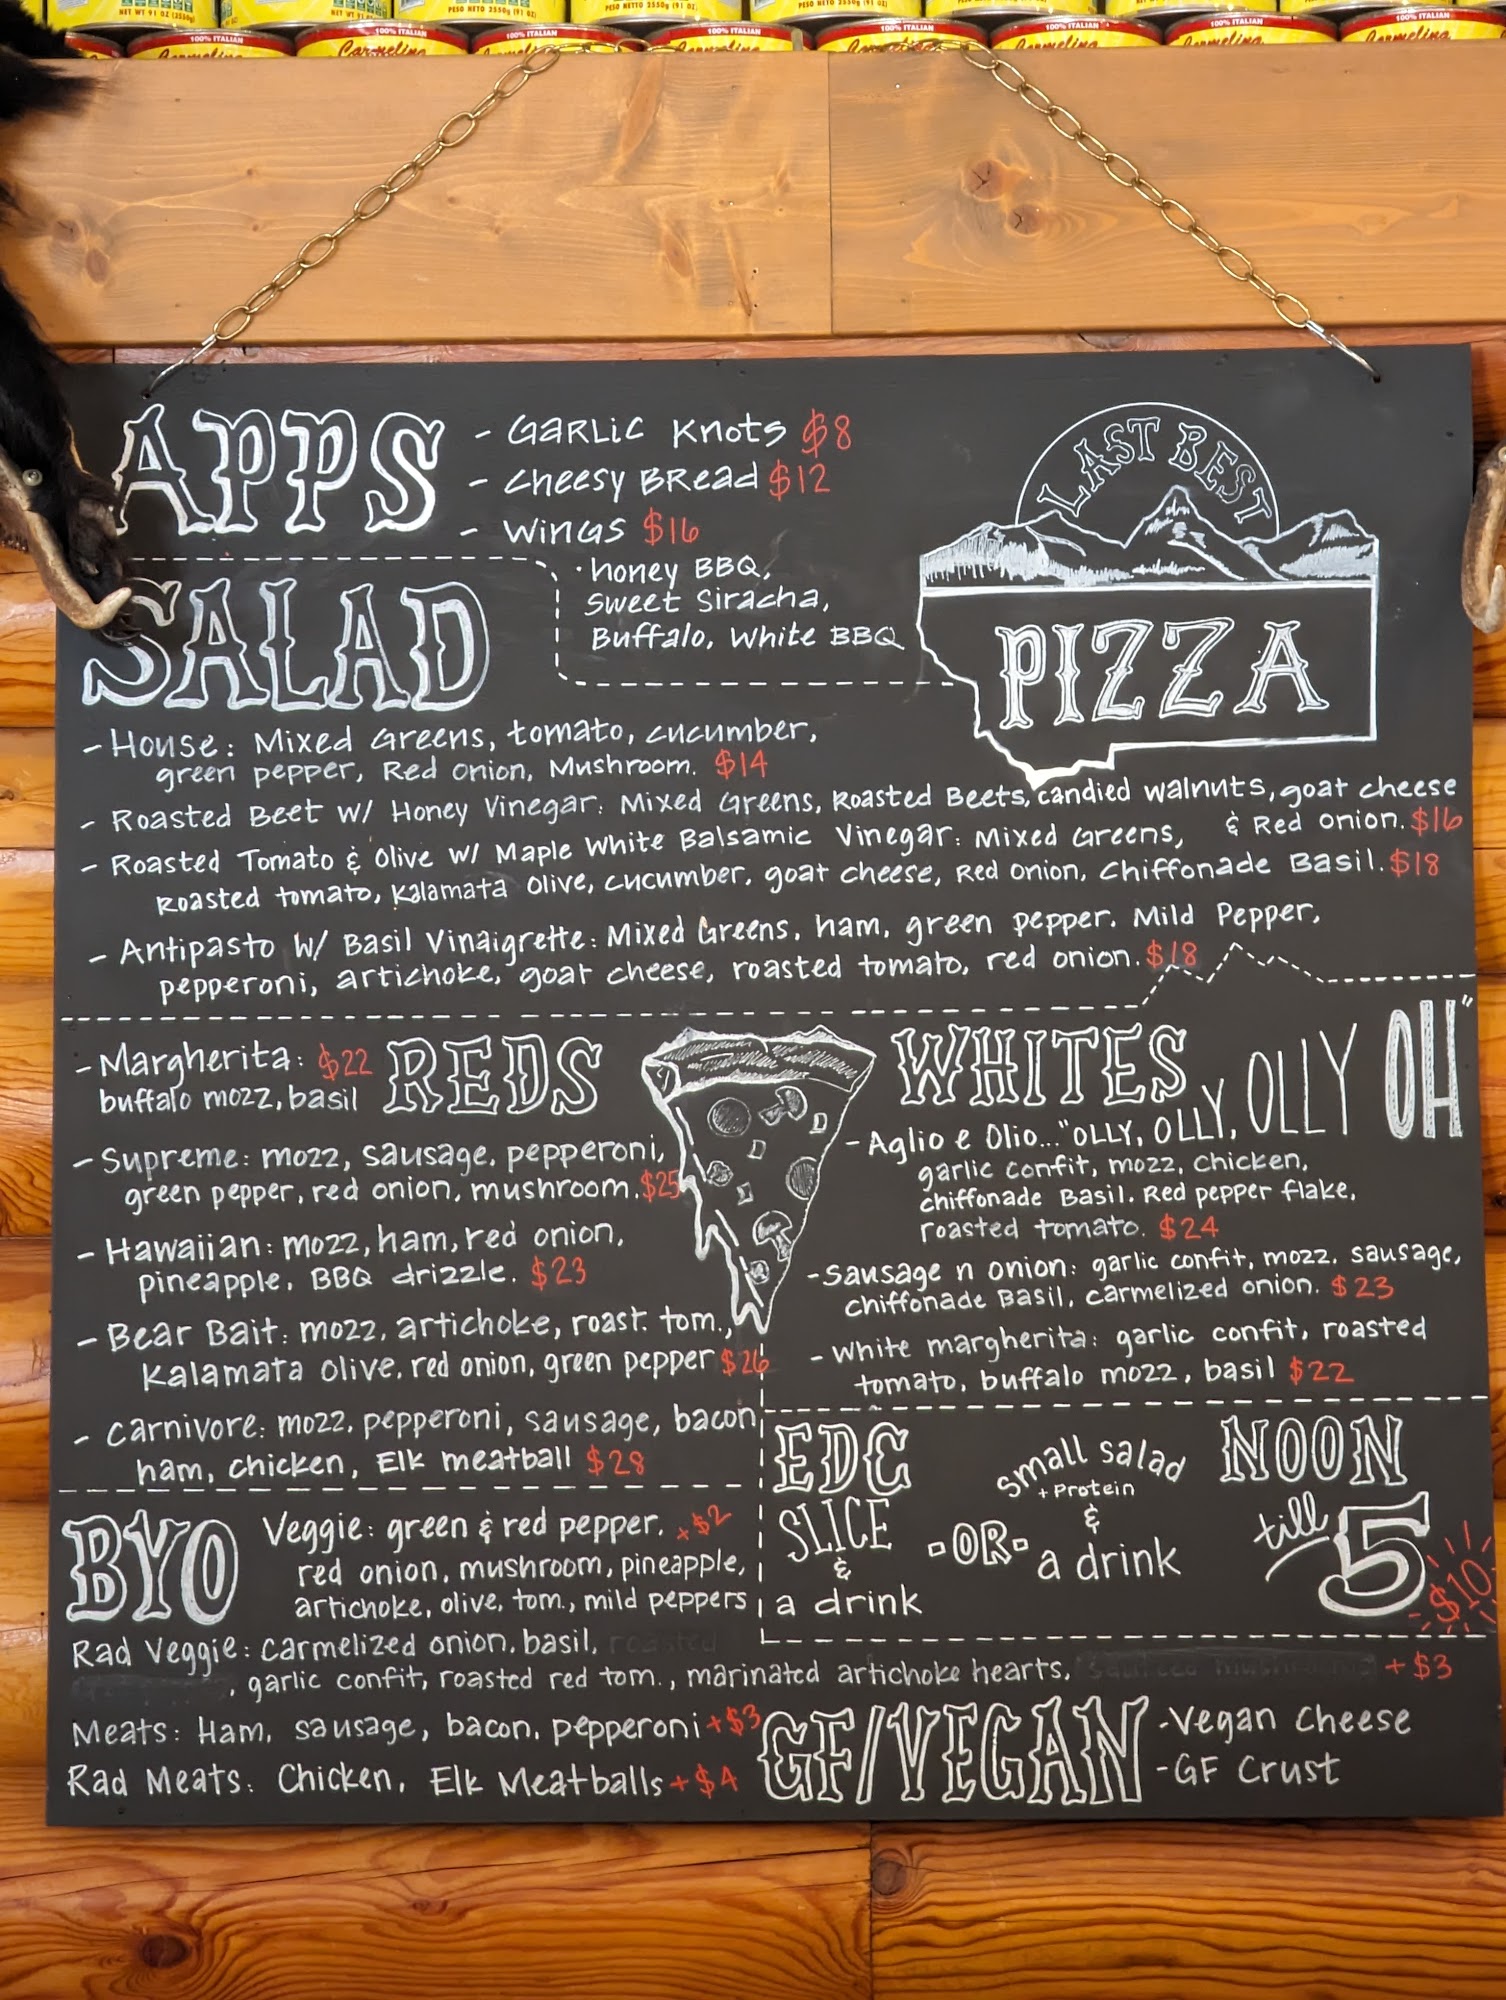 NET WT 91 OZ (2550g)
PESO NETO 2550g (91 OZ)
100% ITALIAN
Carmelina
100% ITALIAN
Carmelina
100% ITALIAN
Carmelina
100% ITALIAN
Carmelina
100% ITALIAN
Carmelina
100% ITALIAN
Carmelina
100% ITALIAN
Carmelina
APPS
- Garlic Knots $8
- Cheesy Bread $12
- Wings $16
· honey BBQ,
Sweet Siracha,
Buffalo, White BBQ
LAST BEST
PIZZA
SALAD
- House: Mixed Greens, tomato, cucumber,
green pepper, Red onion, Mushroom. $14
- Roasted Beet w/ Honey Vinegar: Mixed Greens, Roasted Beets, candied walnuts, goat cheese
& Red onion. $16
- Roasted Tomato & Olive w/ Maple White Balsamic Vinegar: Mixed Greens,
Roasted tomato, Kalamata Olive, cucumber, goat cheese, Red onion, Chiffonade Basil. $18
- Antipasto w/ Basil Vinaigrette: Mixed Greens, ham, green pepper, Mild Pepper,
pepperoni, artichoke, goat cheese, roasted tomato, red onion. $18
REDS
- Margherita: $22
buffalo mozz, basil
- Supreme: mozz, sausage, pepperoni,
green pepper, red onion, mushroom. $25
- Hawaiian: mozz, ham, red onion,
pineapple, BBQ drizzle. $23
- Bear Bait: mozz, artichoke, roast. tom.,
Kalamata olive, red onion, green pepper $26
- Carnivore: mozz, pepperoni, sausage, bacon
ham, chicken, Elk meatball $28
WHITES
- Aglio e Olio..."OLLY, OLLY, OLLY OH"
garlic confit, mozz, chicken,
chiffonade Basil, Red pepper flake,
roasted tomato. $24
- Sausage n onion: garlic confit, mozz, sausage,
chiffonade Basil, carmelized onion. $23
- White margherita: garlic confit, roasted
tomato, buffalo mozz, basil $22
EDC
SLICE
&
a drink
-OR-
small salad
+ protein
&
a drink
NOON
till
5
$10
BYO
Veggie: green & red pepper, +$2
red onion, mushroom, pineapple,
artichoke, olive, tom., mild peppers
Rad Veggie: carmelized onion, basil, roasted
, garlic confit, roasted red tom., marinated artichoke hearts, +$3
Meats: Ham, sausage, bacon, pepperoni +$3
Rad Meats: Chicken, Elk Meatballs +$4
GF/VEGAN
- Vegan Cheese
- GF Crust